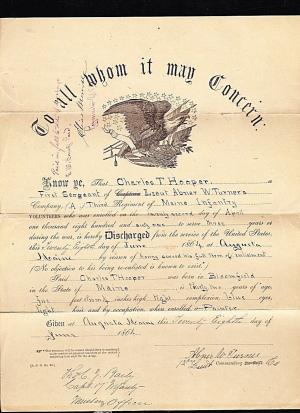 To all whom it may Concern:
Know ye, That Charles T Hooper, a
First Sergeant of Captain Lieut Abner W. Turners
Company, (A) Third Regiment of Maine Infantry
VOLUNTEERS who was enrolled on the twenty second day of April
one thousand eight hundred and sixty one to serve three years or
during the war, is hereby Discharged from the service of the United States,
this Twenty Eighth day of June 1864, at Augusta
Maine by reason of having served his full term of enlistment
(No objection to his being re-enlisted is known to exist.)
Said Charles T Hooper was born in Bloomfield
in the State of Maine is thirty two years of age,
five feet inches high, light complexion, blue eyes,
light hair and by occupation, when enrolled a Painter
Given at Augusta Maine this Twenty Eighth day of
June 1864.
Abner W Turner
Lieut Commanding Co
Capt 17 Infantry
Mustering Officer